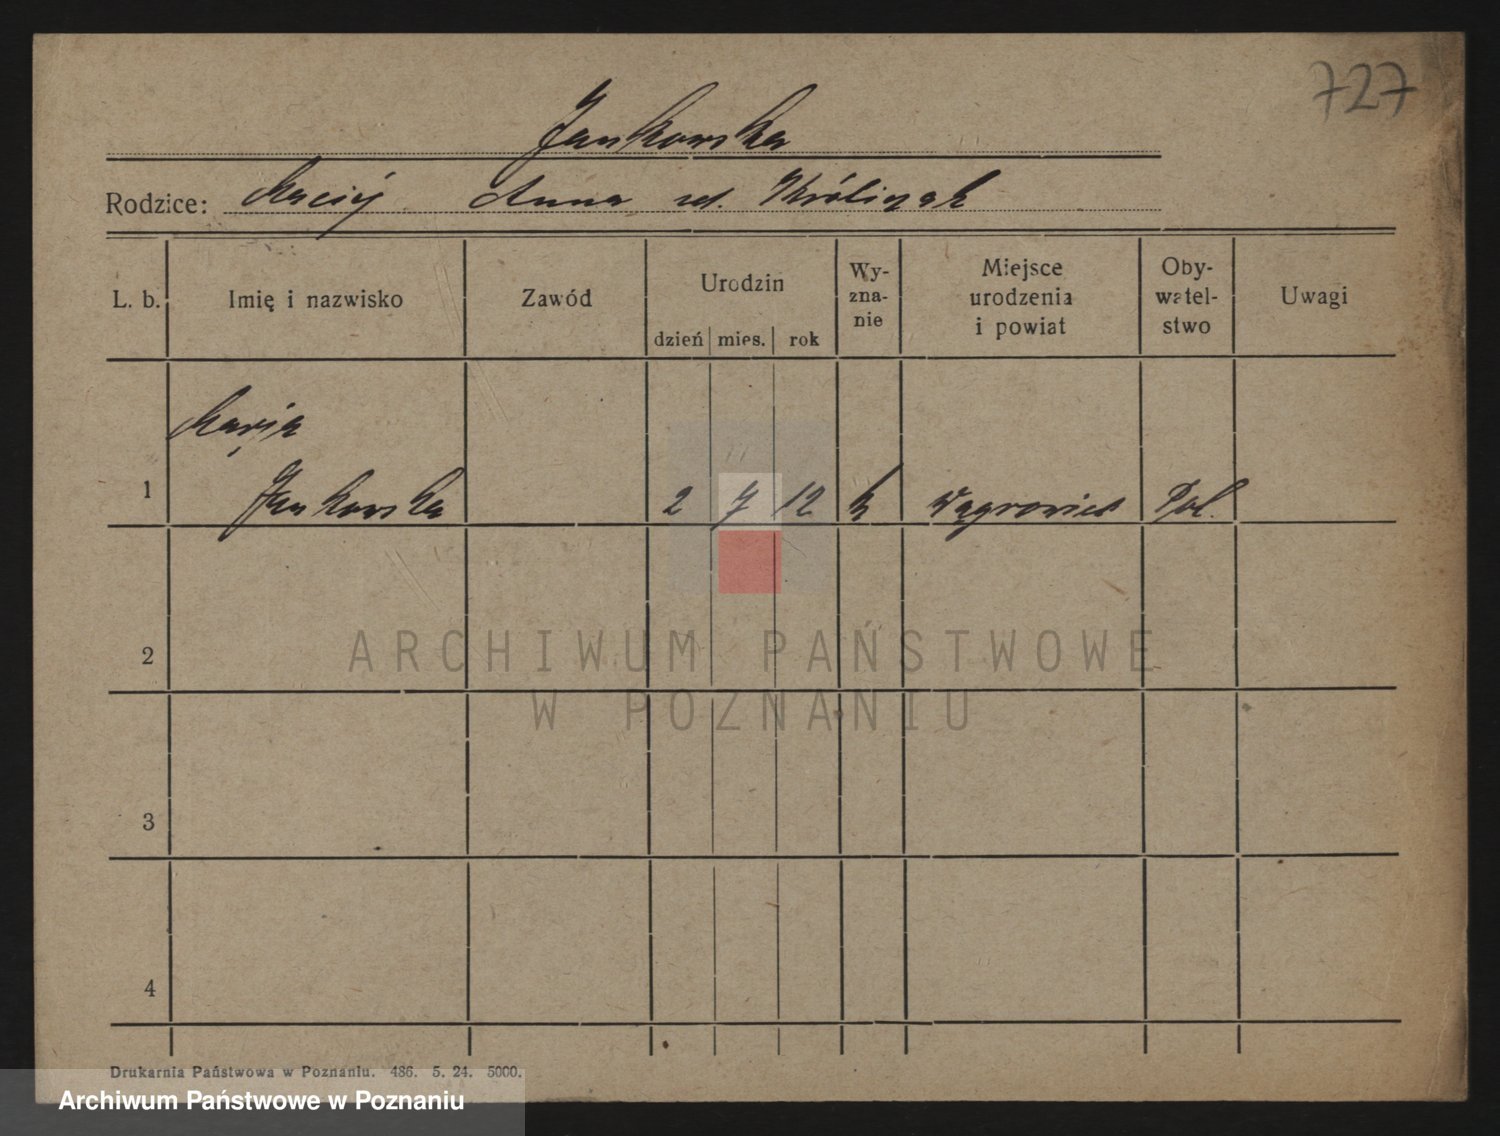 727
Jankowska
Rodzice: Maciej Anna rd. Króliczak
L. b. Imię i nazwisko Zawód Urodzin dzień mies. rok Wy-zna-nie Miejsce urodzenia i powiat Oby-watel-stwo Uwagi
Marja
1 Jankowska 2 7 12 k Wągrowiec Pol.
2
ARCHIWUM PAŃSTWOWE
W POZNANIU
3
4
Drukarnia Państwowa w Poznaniu. 486. 5. 24. 5000.
Archiwum Państwowe w Poznaniu